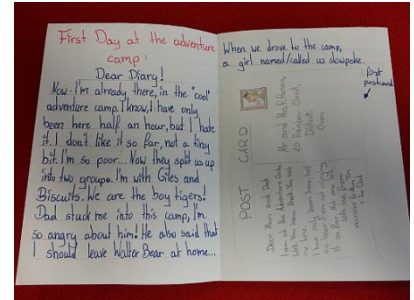 First Day at the adventure
camp:
Dear Diary!
Now I'm already there, in the "cool"
adventure camp. I know, I have only
been here half an hour, but I hate
it. I don't like it so far, not a tiny
bit. I'm so poor... Now they split us up
into two groups. I'm with Giles and
Biscuits. We are the boy tigers!
Dad stuck me into this camp, I'm
so angry about him! He also said that
I should leave Walter Bear at home...
When we drove to the camp,
a girl named/called us slowpoke.
first
postcard
POST CARD
Mr and Mrs P. Parsons,
10 Rainbow
Dear Mum and Dad
I am at the Adventure Centre
I have only been here half